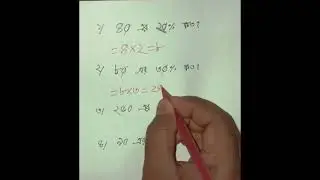 ১) ৪০ এর ২০% কত?
= ৪×2 = ৮
২) ৮০ এর ৩০% কত?
= ৮×৩ = ২৪
৩) ২৫০ এর
৪) ৯০ এর